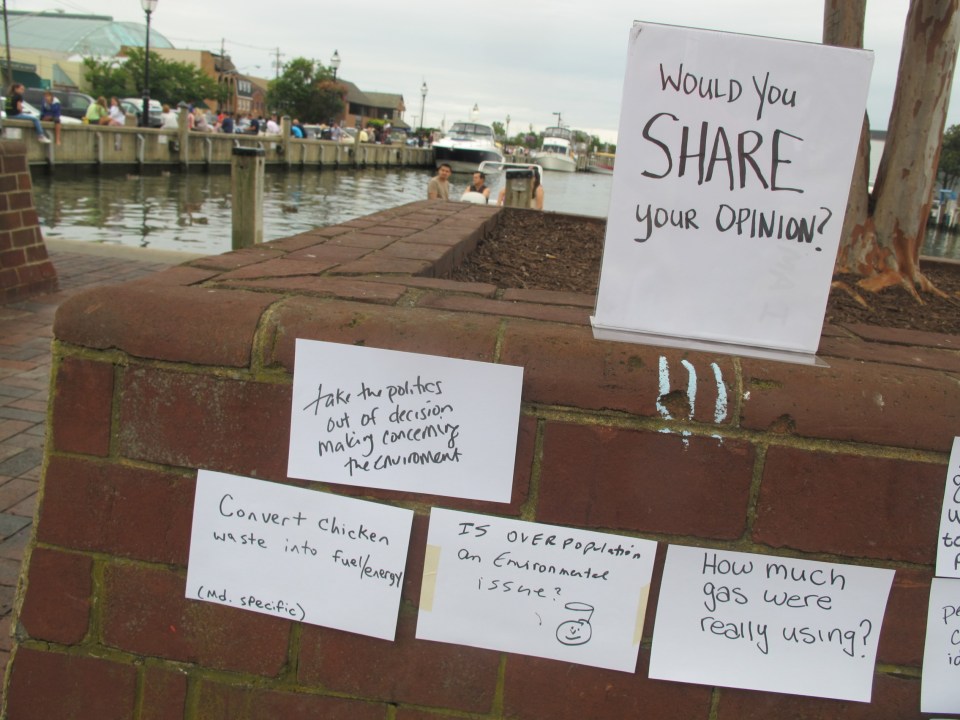 WOULD YOU
SHARE
YOUR OPINION?
take the politics
out of decision
making concerning
the enviroment
Convert Chicken
waste into fuel/energy
(Md. specific)
IS OVERPopulation
an Environmental
issue?
How much
gas were
really using?